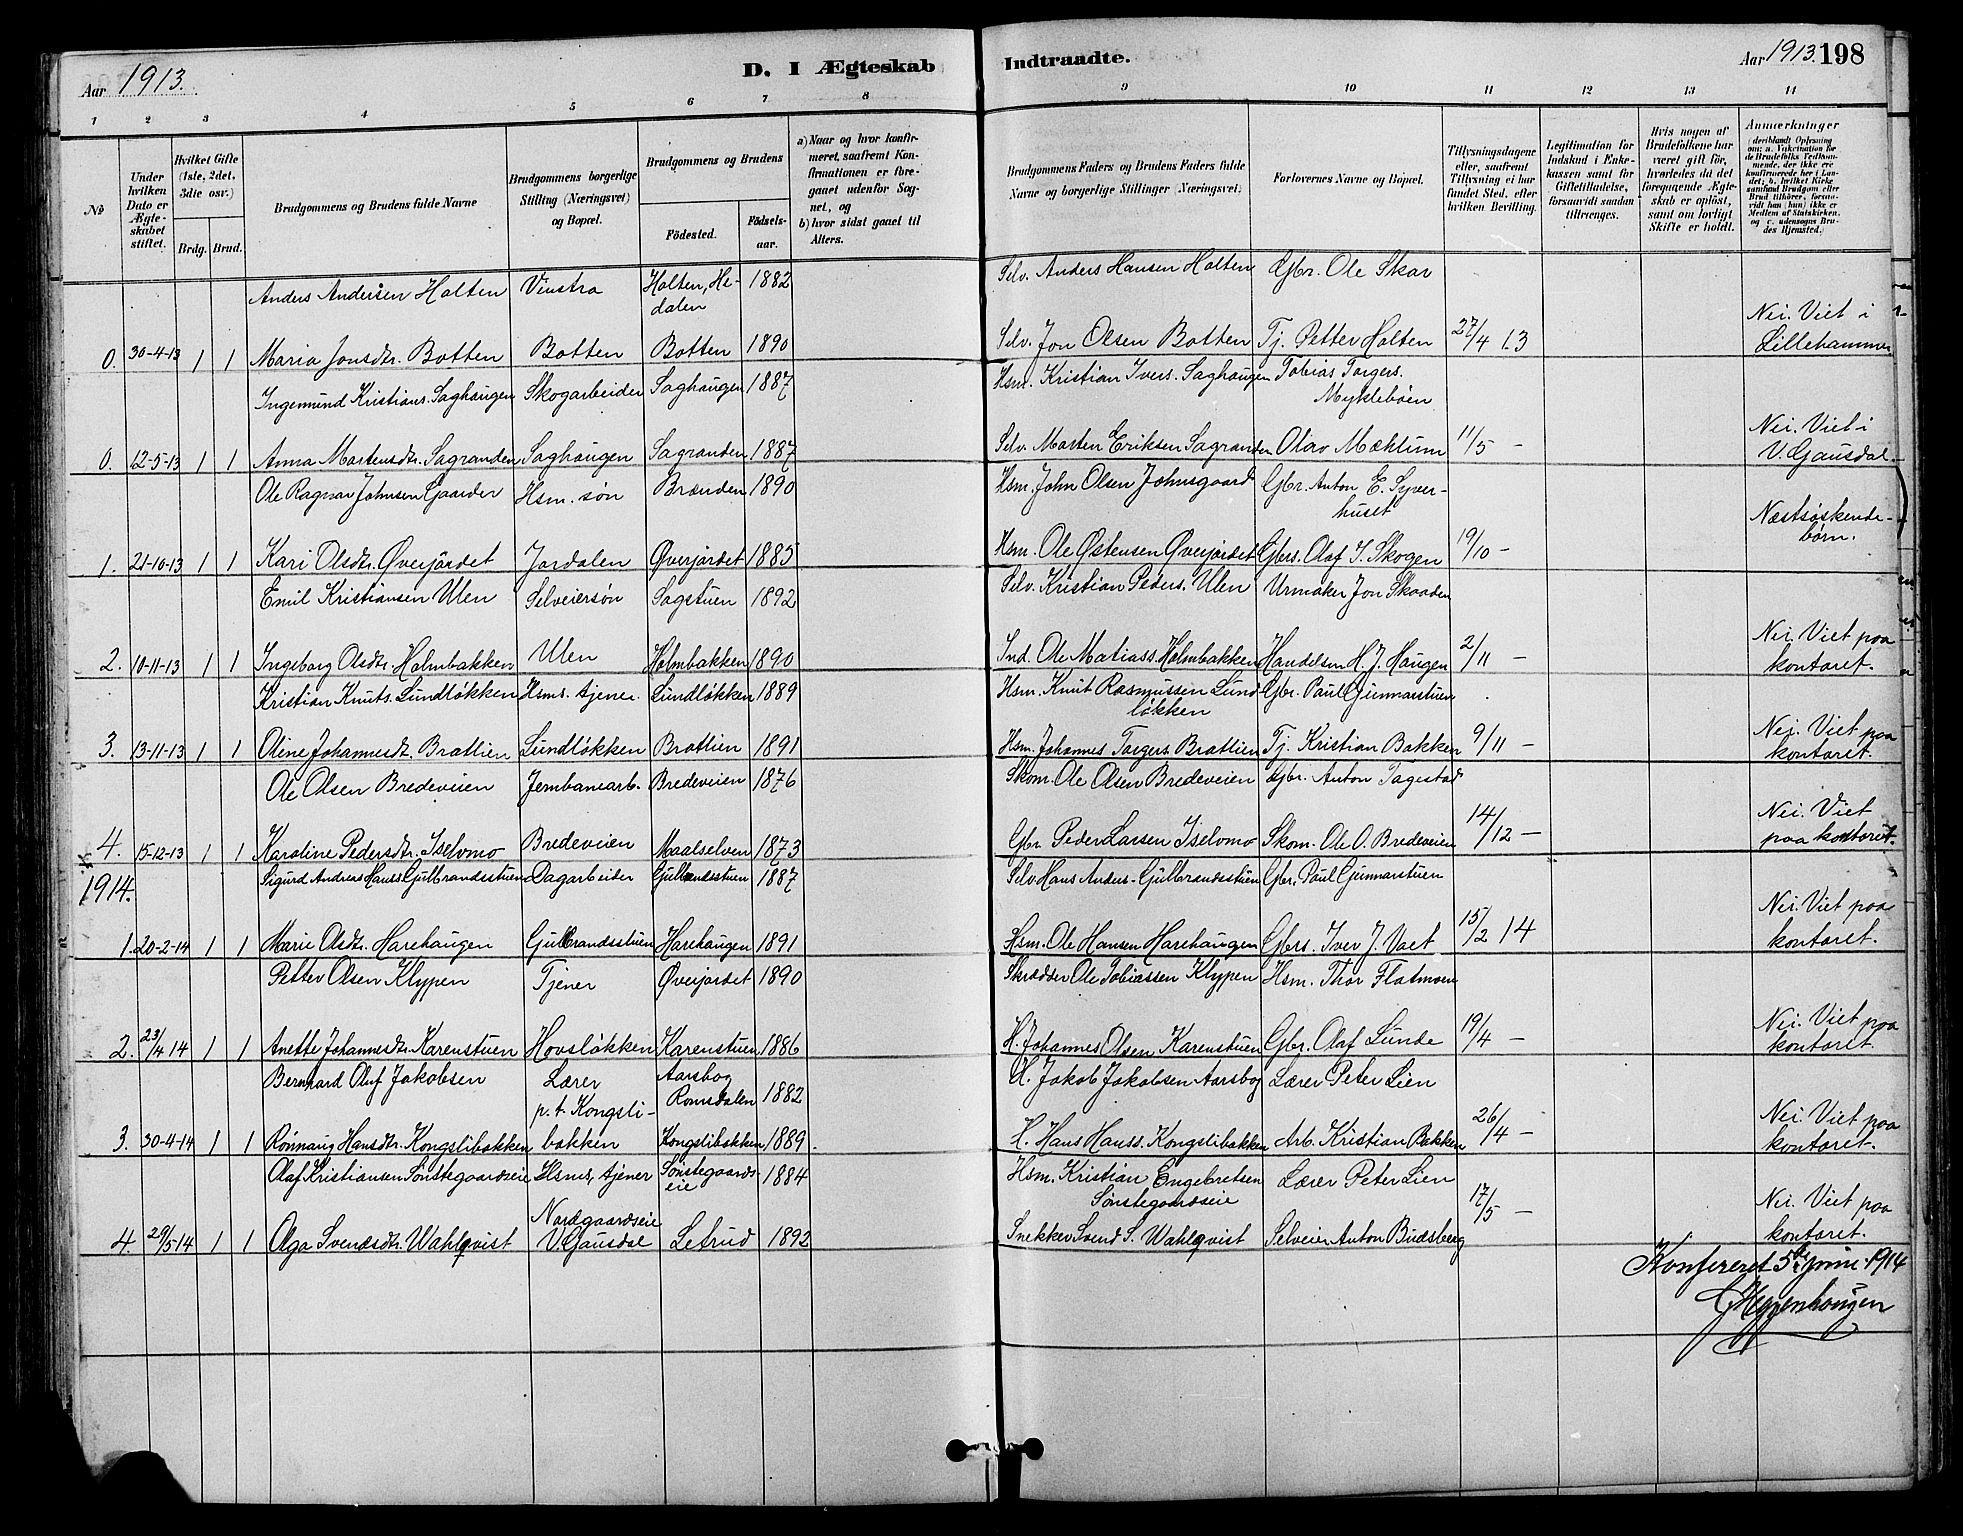 Aar 1913.
D. I Ægteskab
Indtraadte.
Aar 1913. 198
1 2 3 4 5 6 7 8 9 10 11 12 13 14
No
Under hvilken Dato er Ægteskabet stiftet.
Hvilket Gifte (1ste, 2det, 3die osv.)
Brdg. Brud.
Brudgommens og Brudens fulde Navne
Brudgommens borgerlige Stilling (Næringsvei) og Bopæl.
Brudgommens og Brudens
Fødested. Fødselsaar.
a) Naar og hvor konfirmeret, saafremt Konfirmationen er foregaaet udenfor Sognet, og
b) hvor sidst gaaet til Alters.
Brudgommens Faders og Brudens Faders fulde Navne og borgerlige Stillinger (Næringsvei)
Forlovernes Navne og Bopæl.
Tillysningsdagene eller, saafremt Tillysning ei har fundet Sted, efter hvilken Bevilling.
Legitimation for Indskud i Enkekassen samt for Giftetilladelse, forsaavidt saadan tiltrænges.
Hvis nogen af Brudefolkene har været gift før, hvorledes da det foregaaende Ægteskab er opløst, samt om lovligt Skifte er holdt.
Anmærkninger (deriblandt Oplysning om: a. Vakcination for de Brudefolks Vedkommende, der ikke ere konfirmerede her i Landet; b. hvilket Kirkesamfund Brudgom eller Brud tilhører, forsaavidt han (hun) ikke er Medlem af Statskirken, og c. udensogns Brudes Hjemsted.)
Anders Andersen Holten Vinstra Holten, Hedalen 1882 Selv. Anders Hansen Holten Gbr. Ole Skar
0. 30-4-13 1 1 Maria Jonsdtr. Botten Botten Botten 1890 Selv. Jon Olsen Botten Tj. Petter Holten 27/4 13 Nei. Viet i Lillehammer
Ingemund Kristians. Saghaugen Skogarbeider Saghaugen 1887 Hsm. Kristian Ivers. Saghaugen Tobias Torgers. Myklebøen
0. 12-5-13 1 1 Anna Martensdtr. Sagranden Saghaugen Sagranden 1887 Selv. Marten Eriksen Sagranden Olav Mæhlum 11/5 - Nei. Viet i V. Gausdal.
Ole Ragnar Johnsen Gaarder Hsm. søn Brænden 1890 Hsm. John Olsen Johnsgaard Gbr. Anton E. Syverhuset
1. 21-10-13 1 1 Kari Olsdtr. Øverjordet Jordalen Øverjordet 1885 Hsm. Ole Østensen Øverjordet Gbrs. Olaf J. Skogen 19/10 - Næstsøskendebørn.
Emil Kristiansen Ulen Selveiersøn Sagstuen 1892 Selv. Kristian Peders. Ulen Urmaker Jon Skaaden
2. 10-11-13 1 1 Ingeborg Olsdtr. Holmbakken Ulen Holmbakken 1890 Ind. Ole Matiass. Holmbakken Handelsm H. J. Haugen 2/11 - Nei. Viet paa kontoret.
Kristian Knuts. Lundløkken Hsms. tjener Lundløkken 1889 Hsm. Knut Rasmussen Lundløkken Gbr. Paul Gunnarstuen
3. 13-11-13 1 1 Oline Johannesdt. Brattlien Lundløkken Brattlien 1891 Hsm. Johannes Torgers. Brattlien Tj. Kristian Bakken 9/11 - Nei. Viet paa kontoret.
Ole Olsen Bredeveien Jernbanearb. Bredeveien 1876 Skom. Ole Olsen Bredeveien Gbr. Anton Tagestad
4. 15-12-13 1 1 Karoline Pedersdtr. Iselvmo Bredeveien Maalselven 1873 Gbr Peder Larsen Iselvmo Skom. Ole O. Bredeveien 14/12 - Nei. Viet paa kontoret.
1914.
Sigurd Andreas Hanss Gulbrandsstuen Dagarbeider Gulbrandsstuen 1887 Selv Hans Anders. Gulbrandsstuen Gbr. Paul Gunnarstuen
1. 20-2-14 1 1 Marie Olsdtr. Harehaugen Gulbrandsstuen Harehaugen 1891 Hsm. Ole Hansen Harehaugen Gbrs. Iver J. Voet 15/2 14 Nei. Viet paa kontoret.
Petter Olsen Klypen Tjener Øverjordet 1890 Skrædder Ole Tobiassen Klypen Hsm. Thor Flatmoen
2. 23/4 14 1 1 Anette Johannesdtr. Karenstuen Hovsløkken Karenstuen 1886 H. Johannes Olsen Karenstuen Gbr. Olaf Lunde 19/4 - Nei. Viet paa kontoret.
Bernhard Oluf Jakobsen Lærer Aarsbog Romsdalen 1882 H. Jakob Jakobsen Aarsbog Lærer Peter Lien
3. 30-4-14 1 1 Rønnaug Hansdtr. Kongslibakken p.t. Kongslibakken Kongslibakken 1889 H. Hans Hanss. Kongslibakken Arb. Kristian Bakken 26/4 - Nei. Viet paa kontoret.
Olaf Kristiansen Sønstegaardseie Hsms. tjener Sønstegaardseie 1884 Hsm. Kristian Engebretsen Sønstegaardseie Lærer Peter Lien
4. 29/5 14 1 1 Olga Svendsdtr. Wahlqvist Nordgaardseie V. Gausdal Letrud 1892 Snekker Svend S. Wahlqvist Selveier Anton Budsberg 17/5 - Nei. Viet paa kontoret.
Konfereret 5te juni 1914